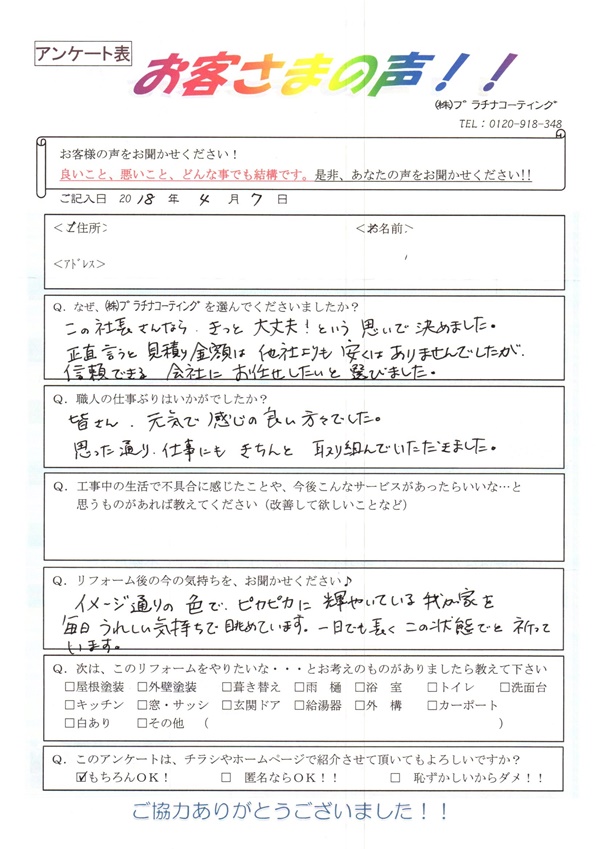 アンケート表
お客さまの声！！
㈱プラチナコーティング
TEL：0120-918-348
お客様の声をお聞かせください！
良いこと、悪いこと、どんな事でも結構です。是非、あなたの声をお聞かせください!!
ご記入日 2018 年 4 月 7 日
＜ご住所＞ ＜お名前＞
＜アドレス＞
Q．なぜ、㈱プラチナコーティングを選んでくださいましたか？
この社長さんなら、きっと大丈夫！という思いで決めました。
正直言うと見積り金額は他社よりも安くはありませんでしたが、
信頼できる会社にお任せしたいと選びました。
Q．職人の仕事ぶりはいかがでしたか？
皆さん、元気で感じの良い方々でした。
思った通り、仕事にもきちんと取り組んでいただきました。
Q．工事中の生活で不具合に感じたことや、今後こんなサービスがあったらいいな…と
思うものがあれば教えてください（改善して欲しいことなど）
Q．リフォーム後の今の気持ちを、お聞かせください♪
イメージ通りの色で、ピカピカに輝やいている我が家を
毎日うれしい気持ちで眺めています。一日でも長くこの状態でと祈って
います。
Q．次は、このリフォームをやりたいな・・・とお考えのものがありましたら教えて下さい
□屋根塗装 □外壁塗装 □葺き替え □雨 樋 □浴 室 □トイレ □洗面台
□キッチン □窓・サッシ □玄関ドア □給湯器 □外 構 □カーポート
□白あり □その他 （ ）
Q．このアンケートは、チラシやホームページで紹介させて頂いてもよろしいですか？
☑もちろんOK！ □ 匿名ならOK！！ □ 恥ずかしいからダメ！！
ご協力ありがとうございました！！